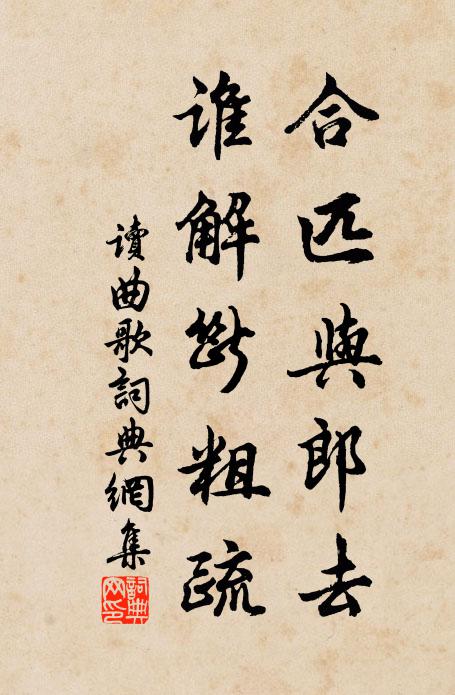 合匹與郎去
誰解斷粗疏
讀曲歌詞典網集
詞典